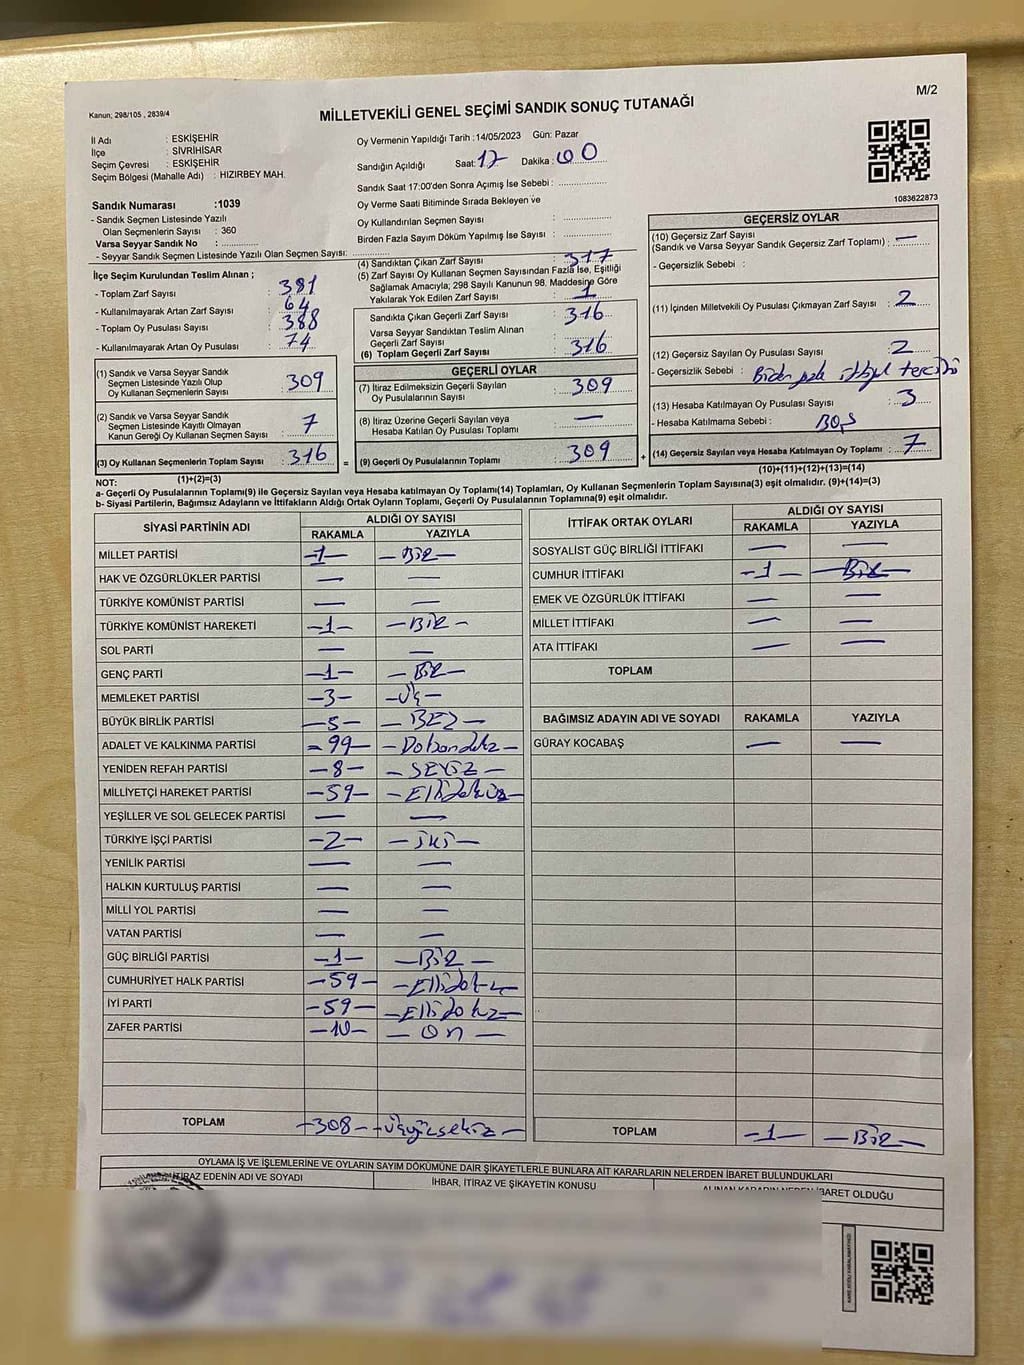 M/2
Kanun; 298/105 , 2839/4
MİLLETVEKİLİ GENEL SEÇİMİ SANDIK SONUÇ TUTANAĞI
İl Adı : ESKİŞEHİR
İlçe : SİVRİHİSAR
Seçim Çevresi : ESKİŞEHİR
Seçim Bölgesi (Mahalle Adı) : HIZIRBEY MAH.
Sandık Numarası :1039
- Sandık Seçmen Listesinde Yazılı
Olan Seçmenlerin Sayısı : 360
Varsa Seyyar Sandık No :
- Seyyar Sandık Seçmen Listesinde Yazılı Olan Seçmen Sayısı:
Oy Vermenin Yapıldığı Tarih :14/05/2023 Gün: Pazar
Sandığın Açıldığı Saat: 17 Dakika : 00
Sandık Saat 17:00'den Sonra Açımış İse Sebebi :
Oy Verme Saati Bitiminde Sırada Bekleyen ve
Oy Kullandırılan Seçmen Sayısı :
Birden Fazla Sayım Döküm Yapılmış İse Sayısı :
1083622873
İlçe Seçim Kurulundan Teslim Alınan ;
- Toplam Zarf Sayısı : 381
- Kullanılmayarak Artan Zarf Sayısı : 64
- Toplam Oy Pusulası Sayısı : 388
- Kullanılmayarak Artan Oy Pusulası : 74
(1) Sandık ve Varsa Seyyar Sandık
Seçmen Listesinde Yazılı Olup
Oy Kullanan Seçmenlerin Sayısı : 309
(2) Sandık ve Varsa Seyyar Sandık
Seçmen Listesinde Kayıtlı Olmayan
Kanun Gereği Oy Kullanan Seçmen Sayısı : 7
(3) Oy Kullanan Seçmenlerin Toplam Sayısı : 316
(1)+(2)=(3)
(4) Sandıktan Çıkan Zarf Sayısı : 317
(5) Zarf Sayısı Oy Kullanan Seçmen Sayısından Fazla İse, Eşitliği
Sağlamak Amacıyla; 298 Sayılı Kanunun 98. Maddesine Göre
Yakılarak Yok Edilen Zarf Sayısı : 1
Sandıkta Çıkan Geçerli Zarf Sayısı : 316
Varsa Seyyar Sandıktan Teslim Alınan
Geçerli Zarf Sayısı :
(6) Toplam Geçerli Zarf Sayısı : 316
GEÇERLİ OYLAR
(7) İtiraz Edilmeksizin Geçerli Sayılan
Oy Pusulalarının Sayısı : 309
(8) İtiraz Üzerine Geçerli Sayılan veya
Hesaba Katılan Oy Pusulası Toplamı : —
= (9) Geçerli Oy Pusulalarının Toplamı : 309 +
GEÇERSİZ OYLAR
(10) Geçersiz Zarf Sayısı
(Sandık ve Varsa Seyyar Sandık Geçersiz Zarf Toplamı) : —
- Geçersizlik Sebebi :
(11) İçinden Milletvekili Oy Pusulası Çıkmayan Zarf Sayısı : 2
(12) Geçersiz Sayılan Oy Pusulası Sayısı : 2
- Geçersizlik Sebebi : tercihi
(13) Hesaba Katılmayan Oy Pusulası Sayısı : 3
- Hesaba Katılmama Sebebi : BOŞ
(14) Geçersiz Sayılan veya Hesaba Katılmayan Oy Toplamı : 7
(10)+(11)+(12)+(13)=(14)
NOT:
a- Geçerli Oy Pusulalarının Toplamı(9) ile Geçersiz Sayılan veya Hesaba Katılmayan Oy Toplamı(14) Toplamları, Oy Kullanan Seçmenlerin Toplam Sayısına(3) eşit olmalıdır. (9)+(14)=(3)
b- Siyasi Partilerin, Bağımsız Adayların ve İttifakların Aldığı Ortak Oyların Toplamı, Geçerli Oy Pusulalarının Toplamına(9) eşit olmalıdır.
SİYASİ PARTİNİN ADI ALDIĞI OY SAYISI
RAKAMLA YAZIYLA
MİLLET PARTİSİ -1- - BİR -
HAK VE ÖZGÜRLÜKLER PARTİSİ — —
TÜRKİYE KOMÜNİST PARTİSİ — —
TÜRKİYE KOMÜNİST HAREKETİ -1- - BİR -
SOL PARTİ — —
GENÇ PARTİ -1- - BİR -
MEMLEKET PARTİSİ -3- - Üç -
BÜYÜK BİRLİK PARTİSİ -5- - BEŞ -
ADALET VE KALKINMA PARTİSİ - 99 -
YENİDEN REFAH PARTİSİ -8- - SEKİZ -
MİLLİYETÇİ HAREKET PARTİSİ -59- - Ellidokuz -
YEŞİLLER VE SOL GELECEK PARTİSİ — —
TÜRKİYE İŞÇİ PARTİSİ -2- - iki -
YENİLİK PARTİSİ — —
HALKIN KURTULUŞ PARTİSİ — —
MİLLİ YOL PARTİSİ — —
VATAN PARTİSİ — —
GÜÇ BİRLİĞİ PARTİSİ -1- - BİR -
CUMHURİYET HALK PARTİSİ -59-
İYİ PARTİ -59- - Ellidokuz -
ZAFER PARTİSİ -10- - On -
TOPLAM -308- - Üçyüzsekiz -
İTTİFAK ORTAK OYLARI ALDIĞI OY SAYISI
RAKAMLA YAZIYLA
SOSYALİST GÜÇ BİRLİĞİ İTTİFAKI — —
CUMHUR İTTİFAKI -1- - BİR -
EMEK VE ÖZGÜRLÜK İTTİFAKI — —
MİLLET İTTİFAKI — —
ATA İTTİFAKI — —
TOPLAM
BAĞIMSIZ ADAYIN ADI VE SOYADI RAKAMLA YAZIYLA
GÜRAY KOCABAŞ — —
TOPLAM -1- - BİR -
OYLAMA İŞ VE İŞLEMLERİNE VE OYLARIN SAYIM DÖKÜMÜNE DAİR ŞİKAYETLERLE BUNLARA AİT KARARLARIN NELERDEN İBARET BULUNDUKLARI
İTİRAZ EDENİN ADI VE SOYADI İHBAR, İTİRAZ VE ŞİKAYETİN KONUSU ALINAN KARARIN NEDEN İBARET OLDUĞU